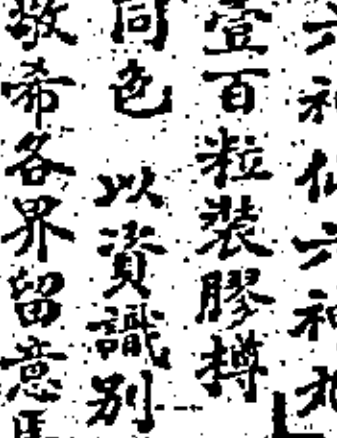 六神仙六神丸
壹百粒裝膠樽
同色 以資識別
敬希各界留意